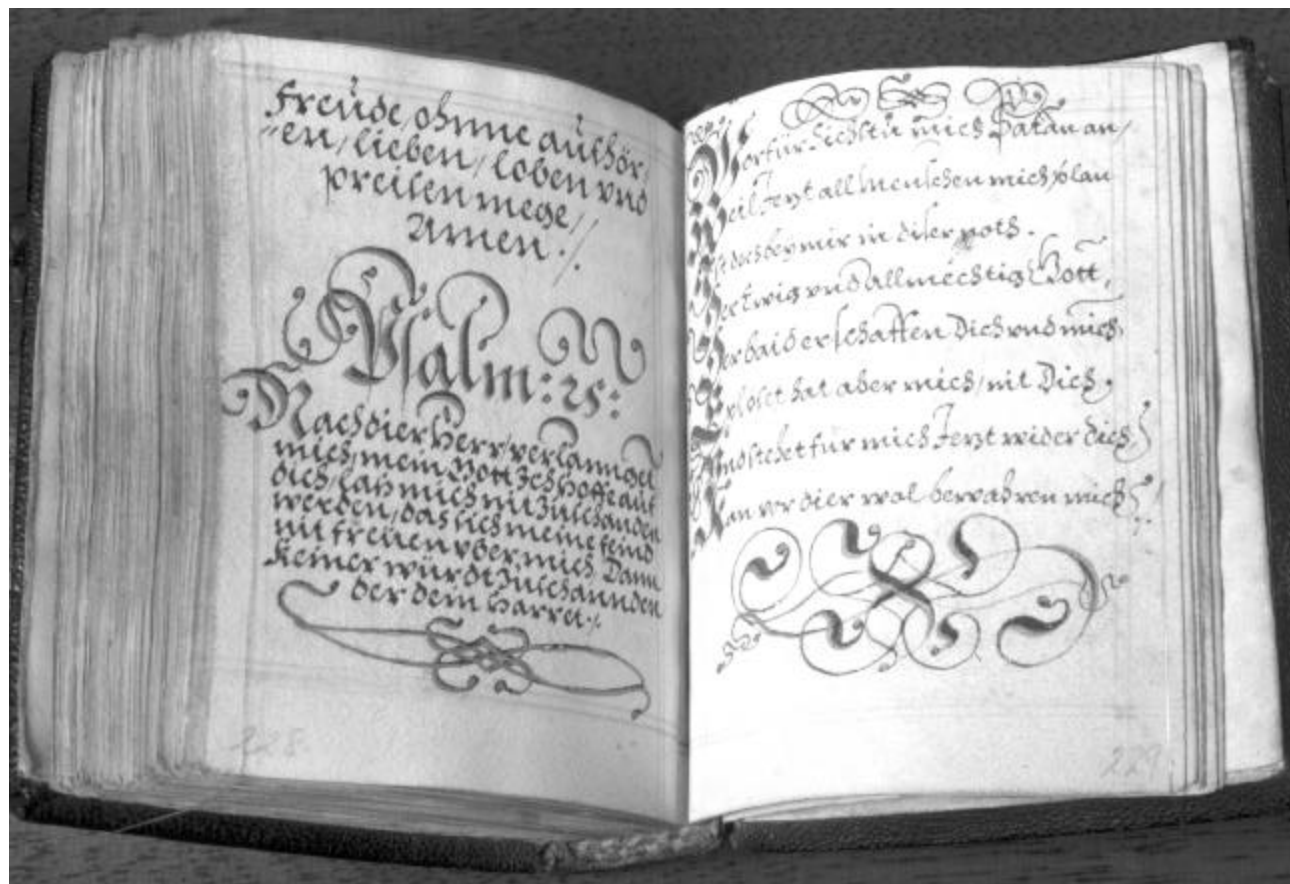 Freüde, ohnne aufhör,
"en, lieben, loben vnd
preisen mege,
Amen.
Psalm: 25:
Nach dier Herr, verlannget
mich, mein Gott Ich hoffe auf
dich, laß mich nit zuschanden
werden, das sich meine feind
nit freüen vber mich, Dann
Keiner würdt zuschannden
der dem harret.
mich Satan an,
Weil Jetzt all Menschen mich
Ist doch bey mir in diser noth.
Der Ewig vnd Allmechtig Gott,
Der baid erschaffen Dich vnd mich,
Erlöset hat aber mich, nit Dich,
Vnd stehet für mich Jetzt wider dich,
Kan vor dier wol bewahren mich.
228
229